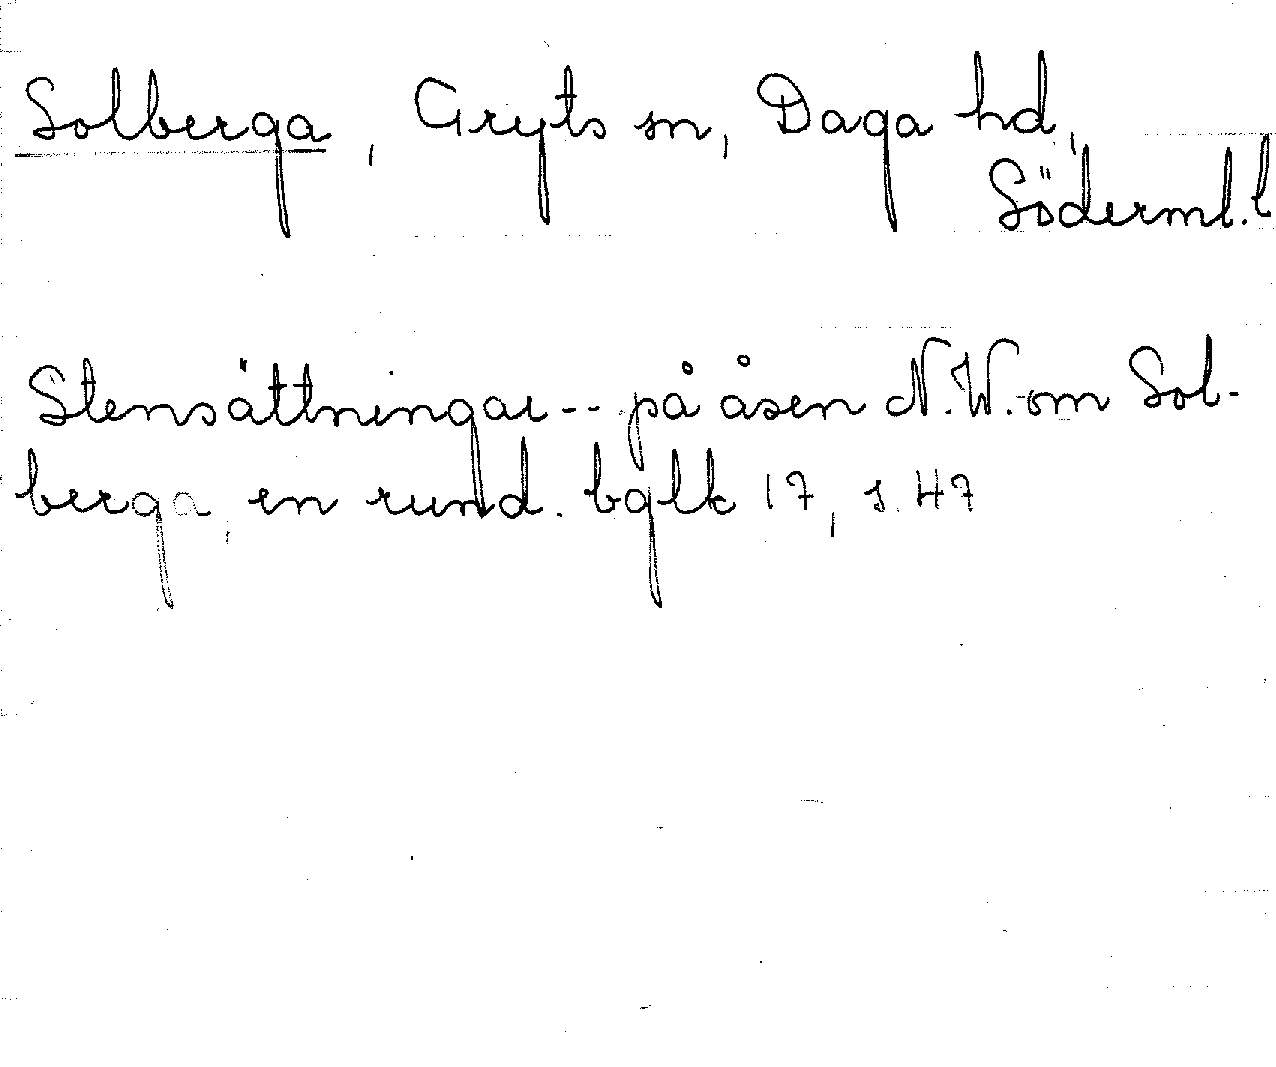 Solberga, Gryts sn, Daga hd,
Söderml. l
Stensättningar -- på åsen N.W. om Sol-
berga, en rund. bglk 17, s. 47